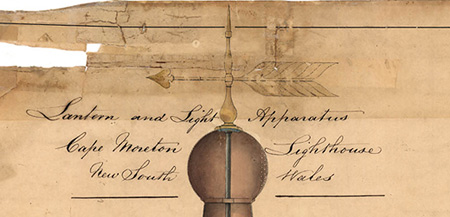 Lantern and Light Apparatus
Cape Moreton Lighthouse
New South Wales